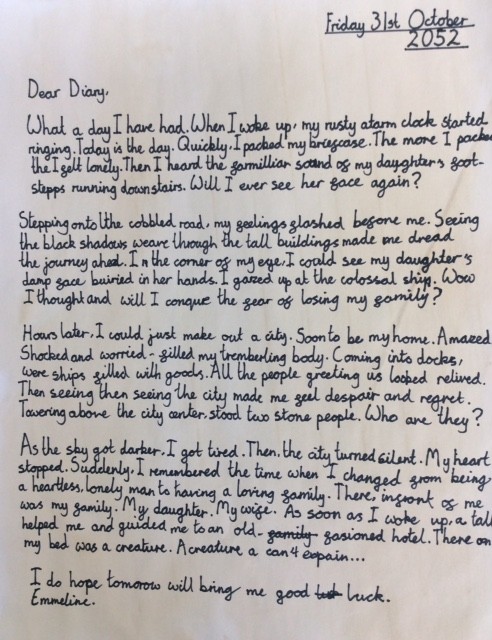 Friday 31st October
2052
Dear Diary,
What a day I have had. When I woke up, my rusty alarm clock started
ringing. Today is the day. Quickly, I packed my briefcase. The more I packed
the I felt lonely. Then I heard the farmilliar sound of my daughter's foot-
stepps running downstairs. Will I ever see her face again?
Stepping onto the cobbled road, my feelings flashed before me. Seeing
the black shadows weave through the tall buildings made me dread
the journey ahed. In the corner of my eye, I could see my daughter's
damp face buiried in her hands. I gazed up at the colossal ship. Wow
I thought and will I conque the fear of losing my family?
Hours later, I could just make out a city. Soon to be my home. Amazed
Shocked and worried - filled my tremberling body. Coming into docks,
were ships filled with goods. All the people greeting us looked relived.
Then seeing then seeing the city made me feel despair and regret.
Towering above the city center, stood two stone people. Who are they?
As the sky got darker, I got tired. Then, the city turned silent. My heart
stopped. Suddenly, I remembered the time when I changed from being
a heartless, lonely man to having a loving family. There, infront of me
was my family. My daughter. My wife. As soon as I woke up, a tall
helped me and guided me to an old- family fasioned hotel. There on
my bed was a creature. A creature a can4 expain...
I do hope tomorow will bring me good luck.
Emmeline.